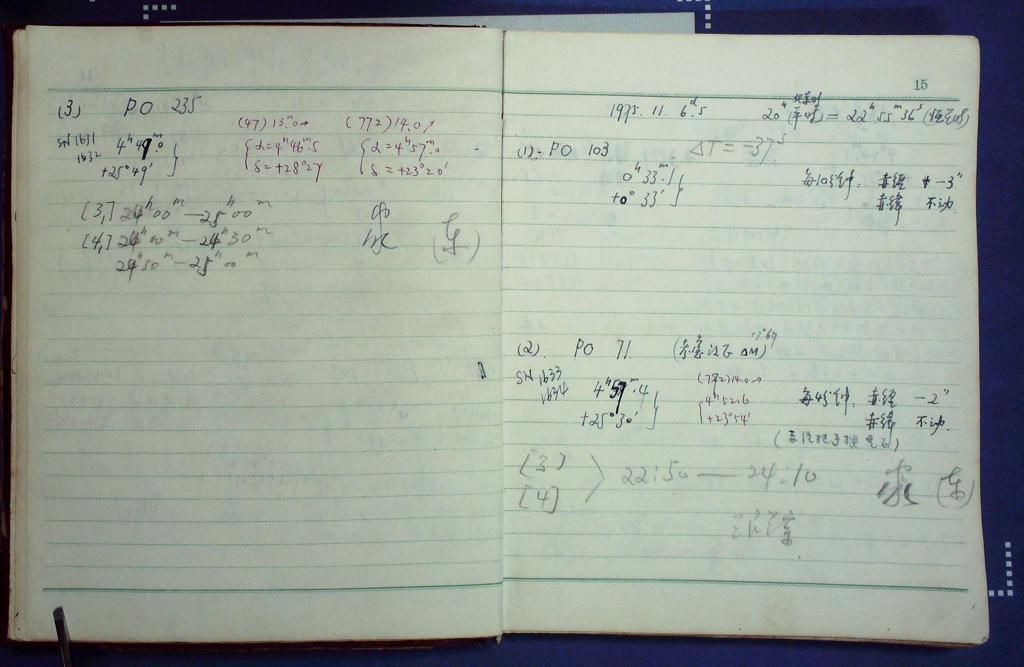 (3) PO 235
SN 1631
1632
4ʰ 49ᵐ.0
+25° 49'
(47) 13ᵐ.0
α=4ʰ46ᵐ5
δ=+28°27'
(772) 14.0
α=4ʰ57ᵐ.0
δ=+23°20'
[3,] 24ʰ00ᵐ—25ʰ00ᵐ
[4,] 24ʰ00ᵐ—24ʰ30ᵐ
24ʰ50ᵐ—25ʰ00ᵐ
(东)
14
15
1975. 11. 6ᵈ.5
20ʰ (北京时 平时) = 22ʰ 55ᵐ 36ˢ (恒星时)
ΔT = -37ˢ
(1). PO 103
0ʰ 33ᵐ.1
+0° 33'
每10分钟, 赤经 -3"
赤纬 不动
(2). PO 71.
SN 1633
1634
4ʰ 59ᵐ.4
+25° 30'
(772) 14.0
4ʰ 52.6
+23°54'
每45分钟, 赤经 -2"
赤纬 不动
[3]
[4]
22:50 — 24:10
(东)